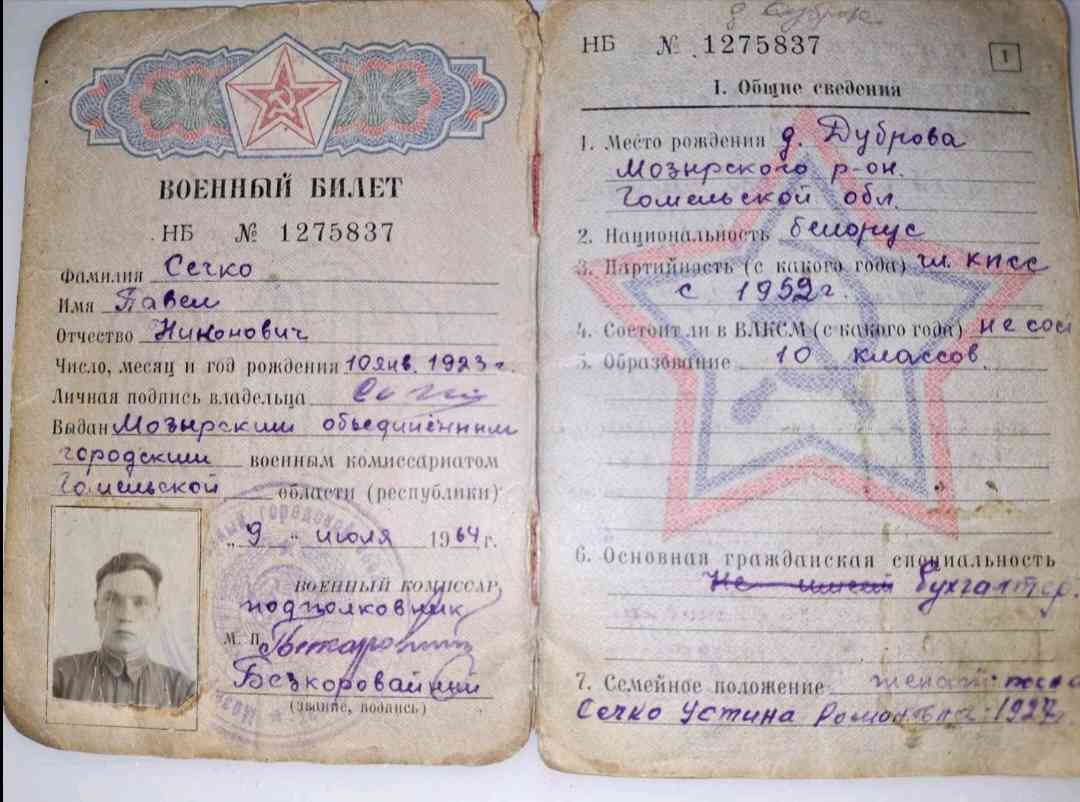 ВОЕННЫЙ БИЛЕТ
НБ № 1275837
Фамилия Сечко
Имя Павел
Отчество Никонович
Число, месяц и год рождения 10 янв. 1923 г.
Личная подпись владельца
Выдан Мозырским объединённым
городским военным комиссариатом
Гомельской области (республики)
„9“ июля 1964 г.
ВОЕННЫЙ КОМИССАР
подполковник
М. П.
Безкоровайный
(звание, подпись)
д Дуброва
НБ № 1275837
1
I. Общие сведения
1. Место рождения д. Дуброва
Мозырского р-он.
Гомельской обл.
2. Национальность белорус
3. Партийность (с какого года) чл. КПСС
с 1952 г.
4. Состоит ли в ВЛКСМ (с какого года) не сос
5. Образование 10 классов.
6. Основная гражданская специальность
Не имеет бухгалтер.
7. Семейное положение женат: жена
Сечко Устина Романовна - 1927 г.